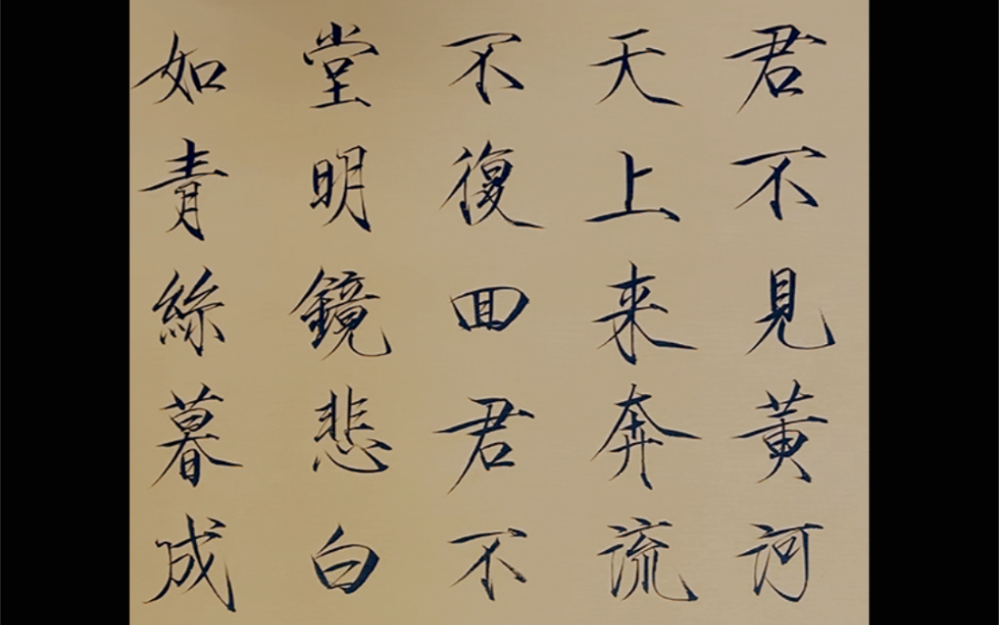 君不見黃河
天上来奔流
不復回君不
堂明鏡悲白
如青絲暮成